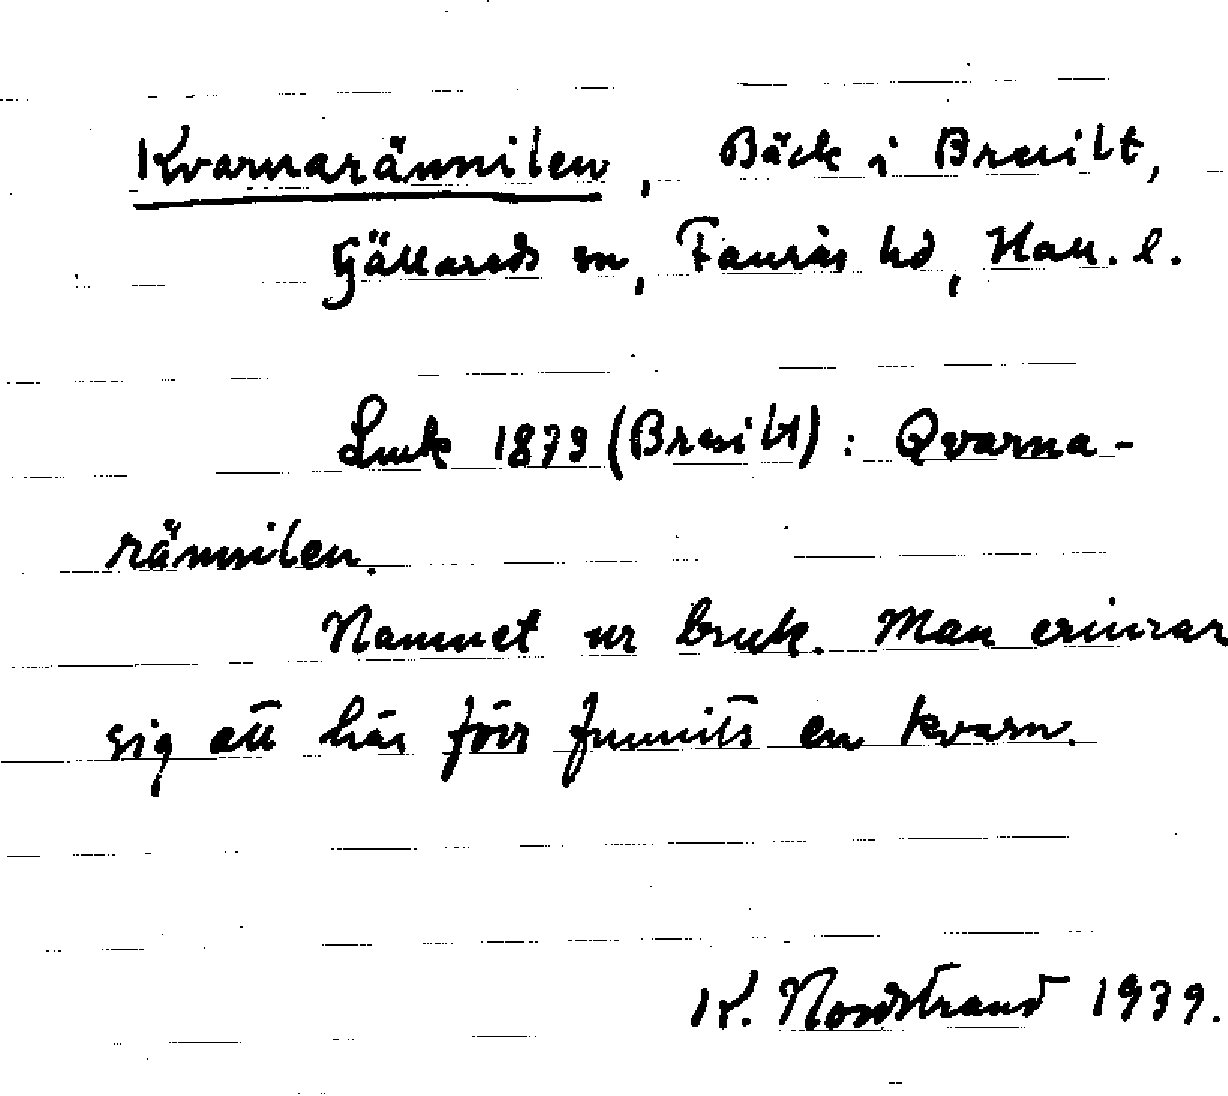 Kvarnarännilen, Bäck i Bresilt,
Gällareds sn, Faurås hd, Hall. l.
Lmk 1879 (Bresilt): Qvarna-
rännilen.
Namnet ur bruk. Man erinrar
sig att här förr funnits en kvarn.
K. Nordstrand 1939.